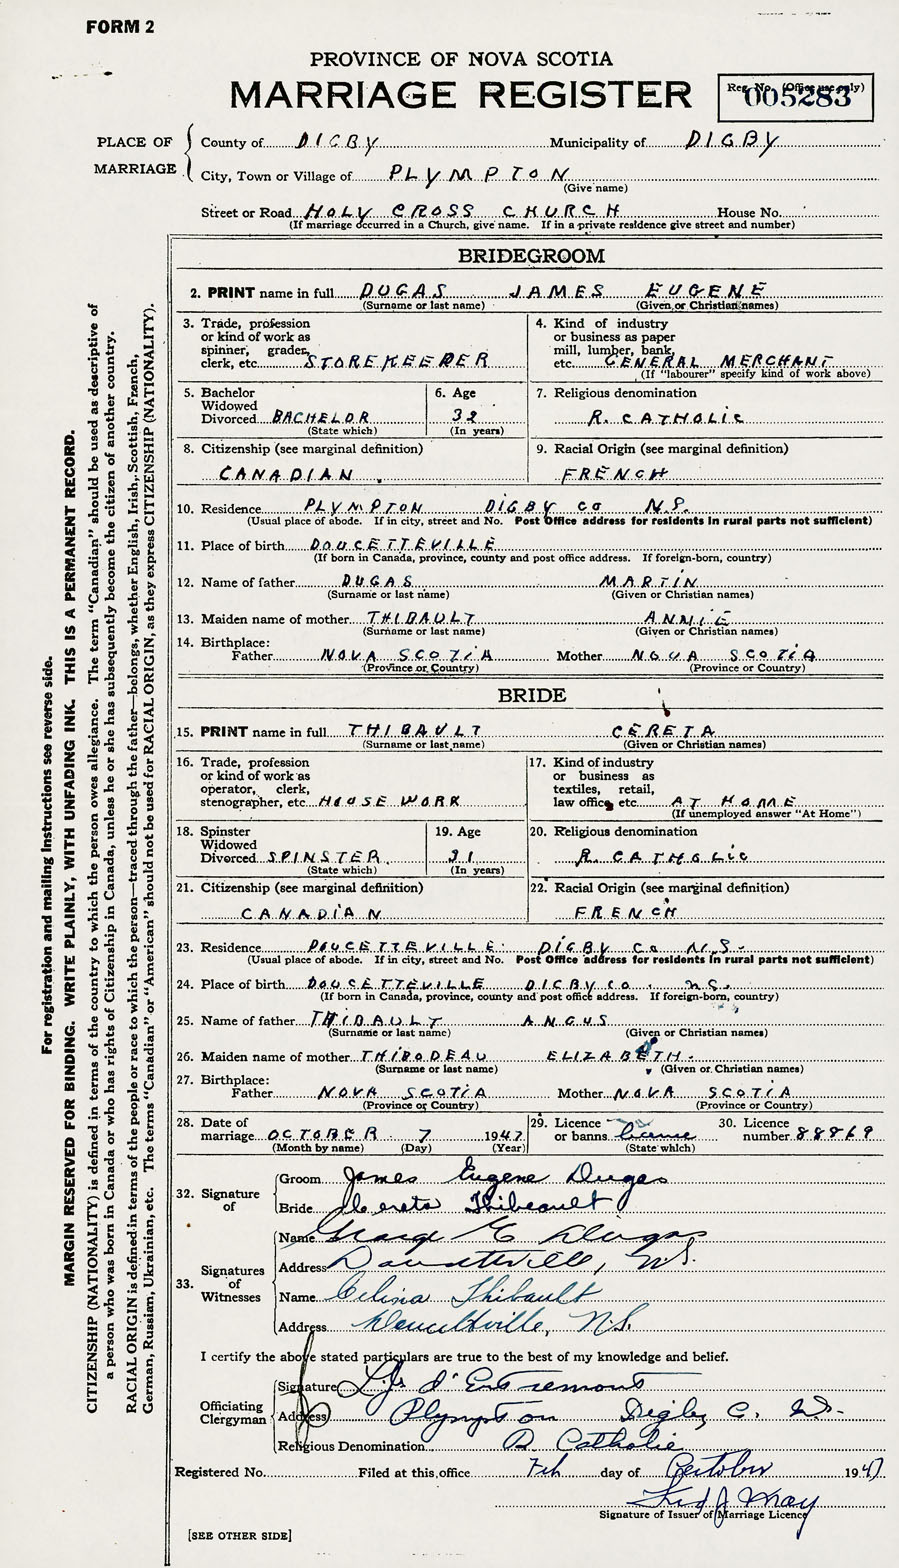 FORM 2
PROVINCE OF NOVA SCOTIA
MARRIAGE REGISTER
Reg. No. (Office use only)
005283
PLACE OF MARRIAGE
County of DIGBY Municipality of DIGBY
City, Town or Village of PLYMPTON
(Give name)
Street or Road HOLY CROSS CHURCH House No.
(If marriage occurred in a Church, give name. If in a private residence give street and number)
BRIDEGROOM
2. PRINT name in full DUGAS JAMES EUGENE
(Surname or last name) (Given or Christian names)
3. Trade, profession
or kind of work as
spinner, grader,
clerk, etc. STOREKEEPER
4. Kind of industry
or business as paper
mill, lumber, bank,
etc. GENERAL MERCHANT
(If "labourer" specify kind of work above)
5. Bachelor
Widowed
Divorced BACHELOR
(State which)
6. Age
32
(In years)
7. Religious denomination
R. CATHOLIC
8. Citizenship (see marginal definition)
CANADIAN
9. Racial Origin (see marginal definition)
FRENCH
10. Residence PLYMPTON DIGBY CO N.S.
(Usual place of abode. If in city, street and No. Post Office address for residents in rural parts not sufficient)
11. Place of birth DOUCETTEVILLE
(If born in Canada, province, county and post office address. If foreign-born, country)
12. Name of father DUGAS MARTIN
(Surname or last name) (Given or Christian names)
13. Maiden name of mother THIBAULT ANNIE
(Surname or last name) (Given or Christian names)
14. Birthplace:
Father NOVA SCOTIA Mother NOVA SCOTIA
(Province or Country) (Province or Country)
BRIDE
15. PRINT name in full THIBAULT CERETA
(Surname or last name) (Given or Christian names)
16. Trade, profession
or kind of work as
operator, clerk,
stenographer, etc. HOUSE WORK
17. Kind of industry
or business as
textiles, retail,
law office, etc. AT HOME
(If unemployed answer "At Home")
18. Spinster
Widowed
Divorced SPINSTER
(State which)
19. Age
31
(In years)
20. Religious denomination
R. CATHOLIC
21. Citizenship (see marginal definition)
CANADIAN
22. Racial Origin (see marginal definition)
FRENCH
23. Residence DOUCETTEVILLE DIGBY CO N.S.
(Usual place of abode. If in city, street and No. Post Office address for residents in rural parts not sufficient)
24. Place of birth DOUCETTEVILLE DIGBY CO. N.S.
(If born in Canada, province, county and post office address. If foreign-born, country)
25. Name of father THIBAULT ANGUS
(Surname or last name) (Given or Christian names)
26. Maiden name of mother THIBODEAU ELIZABETH.
(Surname or last name) (Given or Christian names)
27. Birthplace:
Father NOVA SCOTIA Mother NOVA SCOTIA
(Province or Country) (Province or Country)
28. Date of
marriage OCTOBER 7 1947
(Month by name) (Day) (Year)
29. Licence
or banns licence
(State which)
30. Licence
number 88869
32. Signature of
Groom James Eugene Dugas
Bride Cereta Thibeault
33. Signatures of Witnesses
Name George E Dugas
Address Doucetteville, N.S.
Name Celina Thibault
Address Doucettville, N.S.
I certify the above stated particulars are true to the best of my knowledge and belief.
Officiating Clergyman
Signature d'Entremont
Address Plympton Digby C.
Religious Denomination R. Catholic
Registered No. Filed at this office 7th day of October 1947
Fred J May
Signature of Issuer of Marriage Licence
[SEE OTHER SIDE]
For registration and mailing instructions see reverse side.
MARGIN RESERVED FOR BINDING. WRITE PLAINLY, WITH UNFADING INK. THIS IS A PERMANENT RECORD.
CITIZENSHIP (NATIONALITY) is defined in terms of the country to which the person owes allegiance. The term "Canadian" should be used as descriptive of
a person who was born in Canada or who has rights of Citizenship in Canada, unless he or she has subsequently become the citizen of another country.
RACIAL ORIGIN is defined in terms of the people or race to which the person—traced through the father—belongs, whether English, Irish, Scottish, French,
German, Russian, Ukrainian, etc. The terms "Canadian" or "American" should not be used for RACIAL ORIGIN, as they express CITIZENSHIP (NATIONALITY).